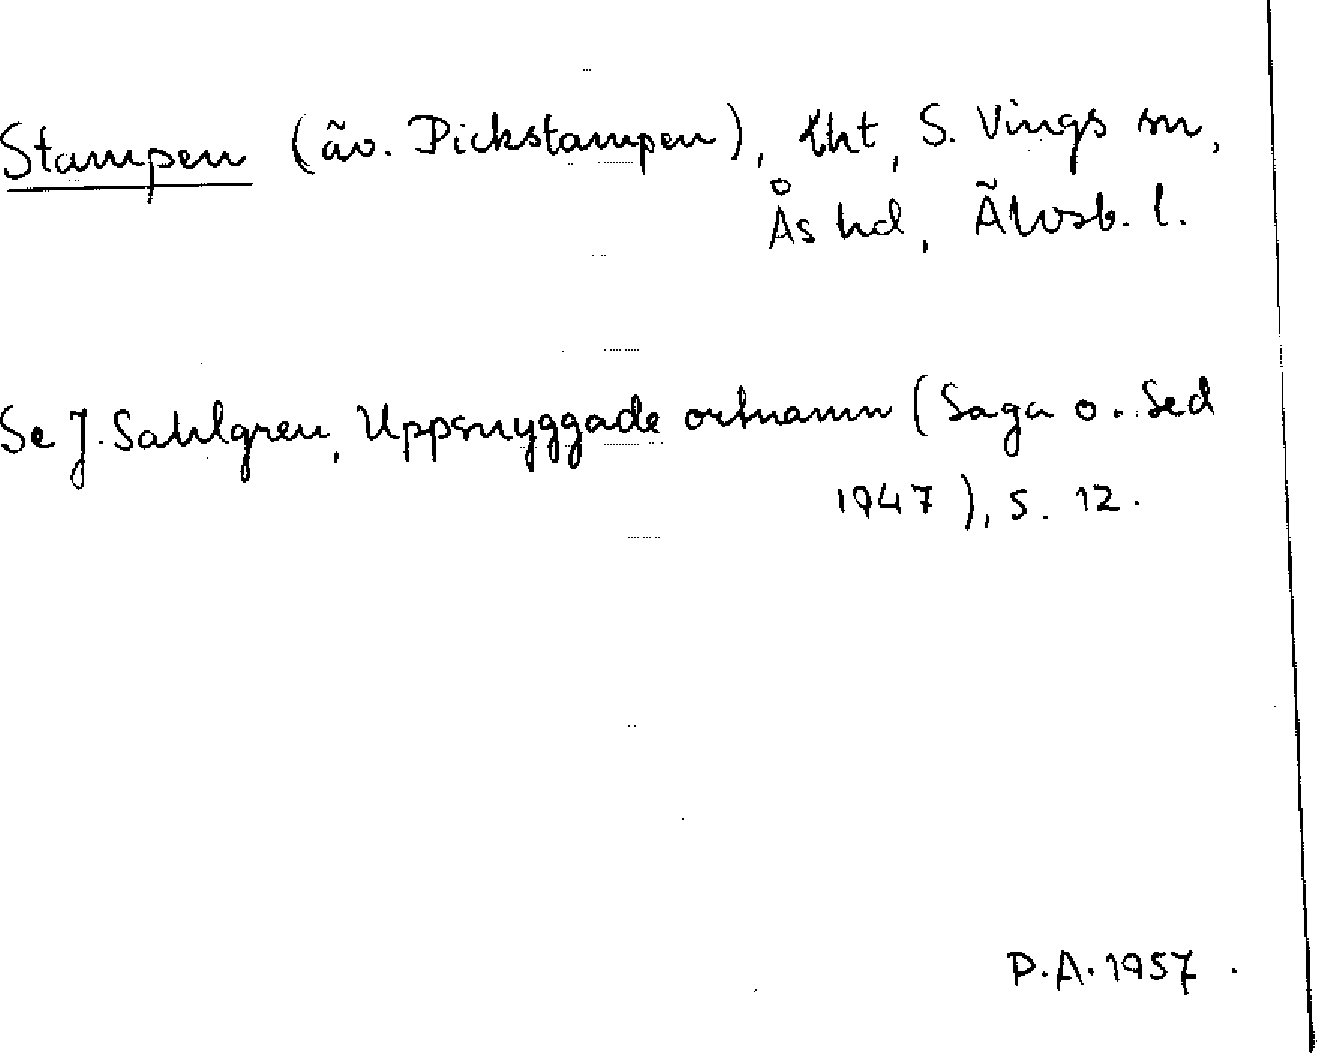 Stampen (äv. Pickstampen), lht, S. Vings sn,
Ås hd, Älvsb. l.
Se J. Sahlgren, Uppsnyggade ortnamn (Saga o. Sed
1947), s. 12.
P.A. 1957.